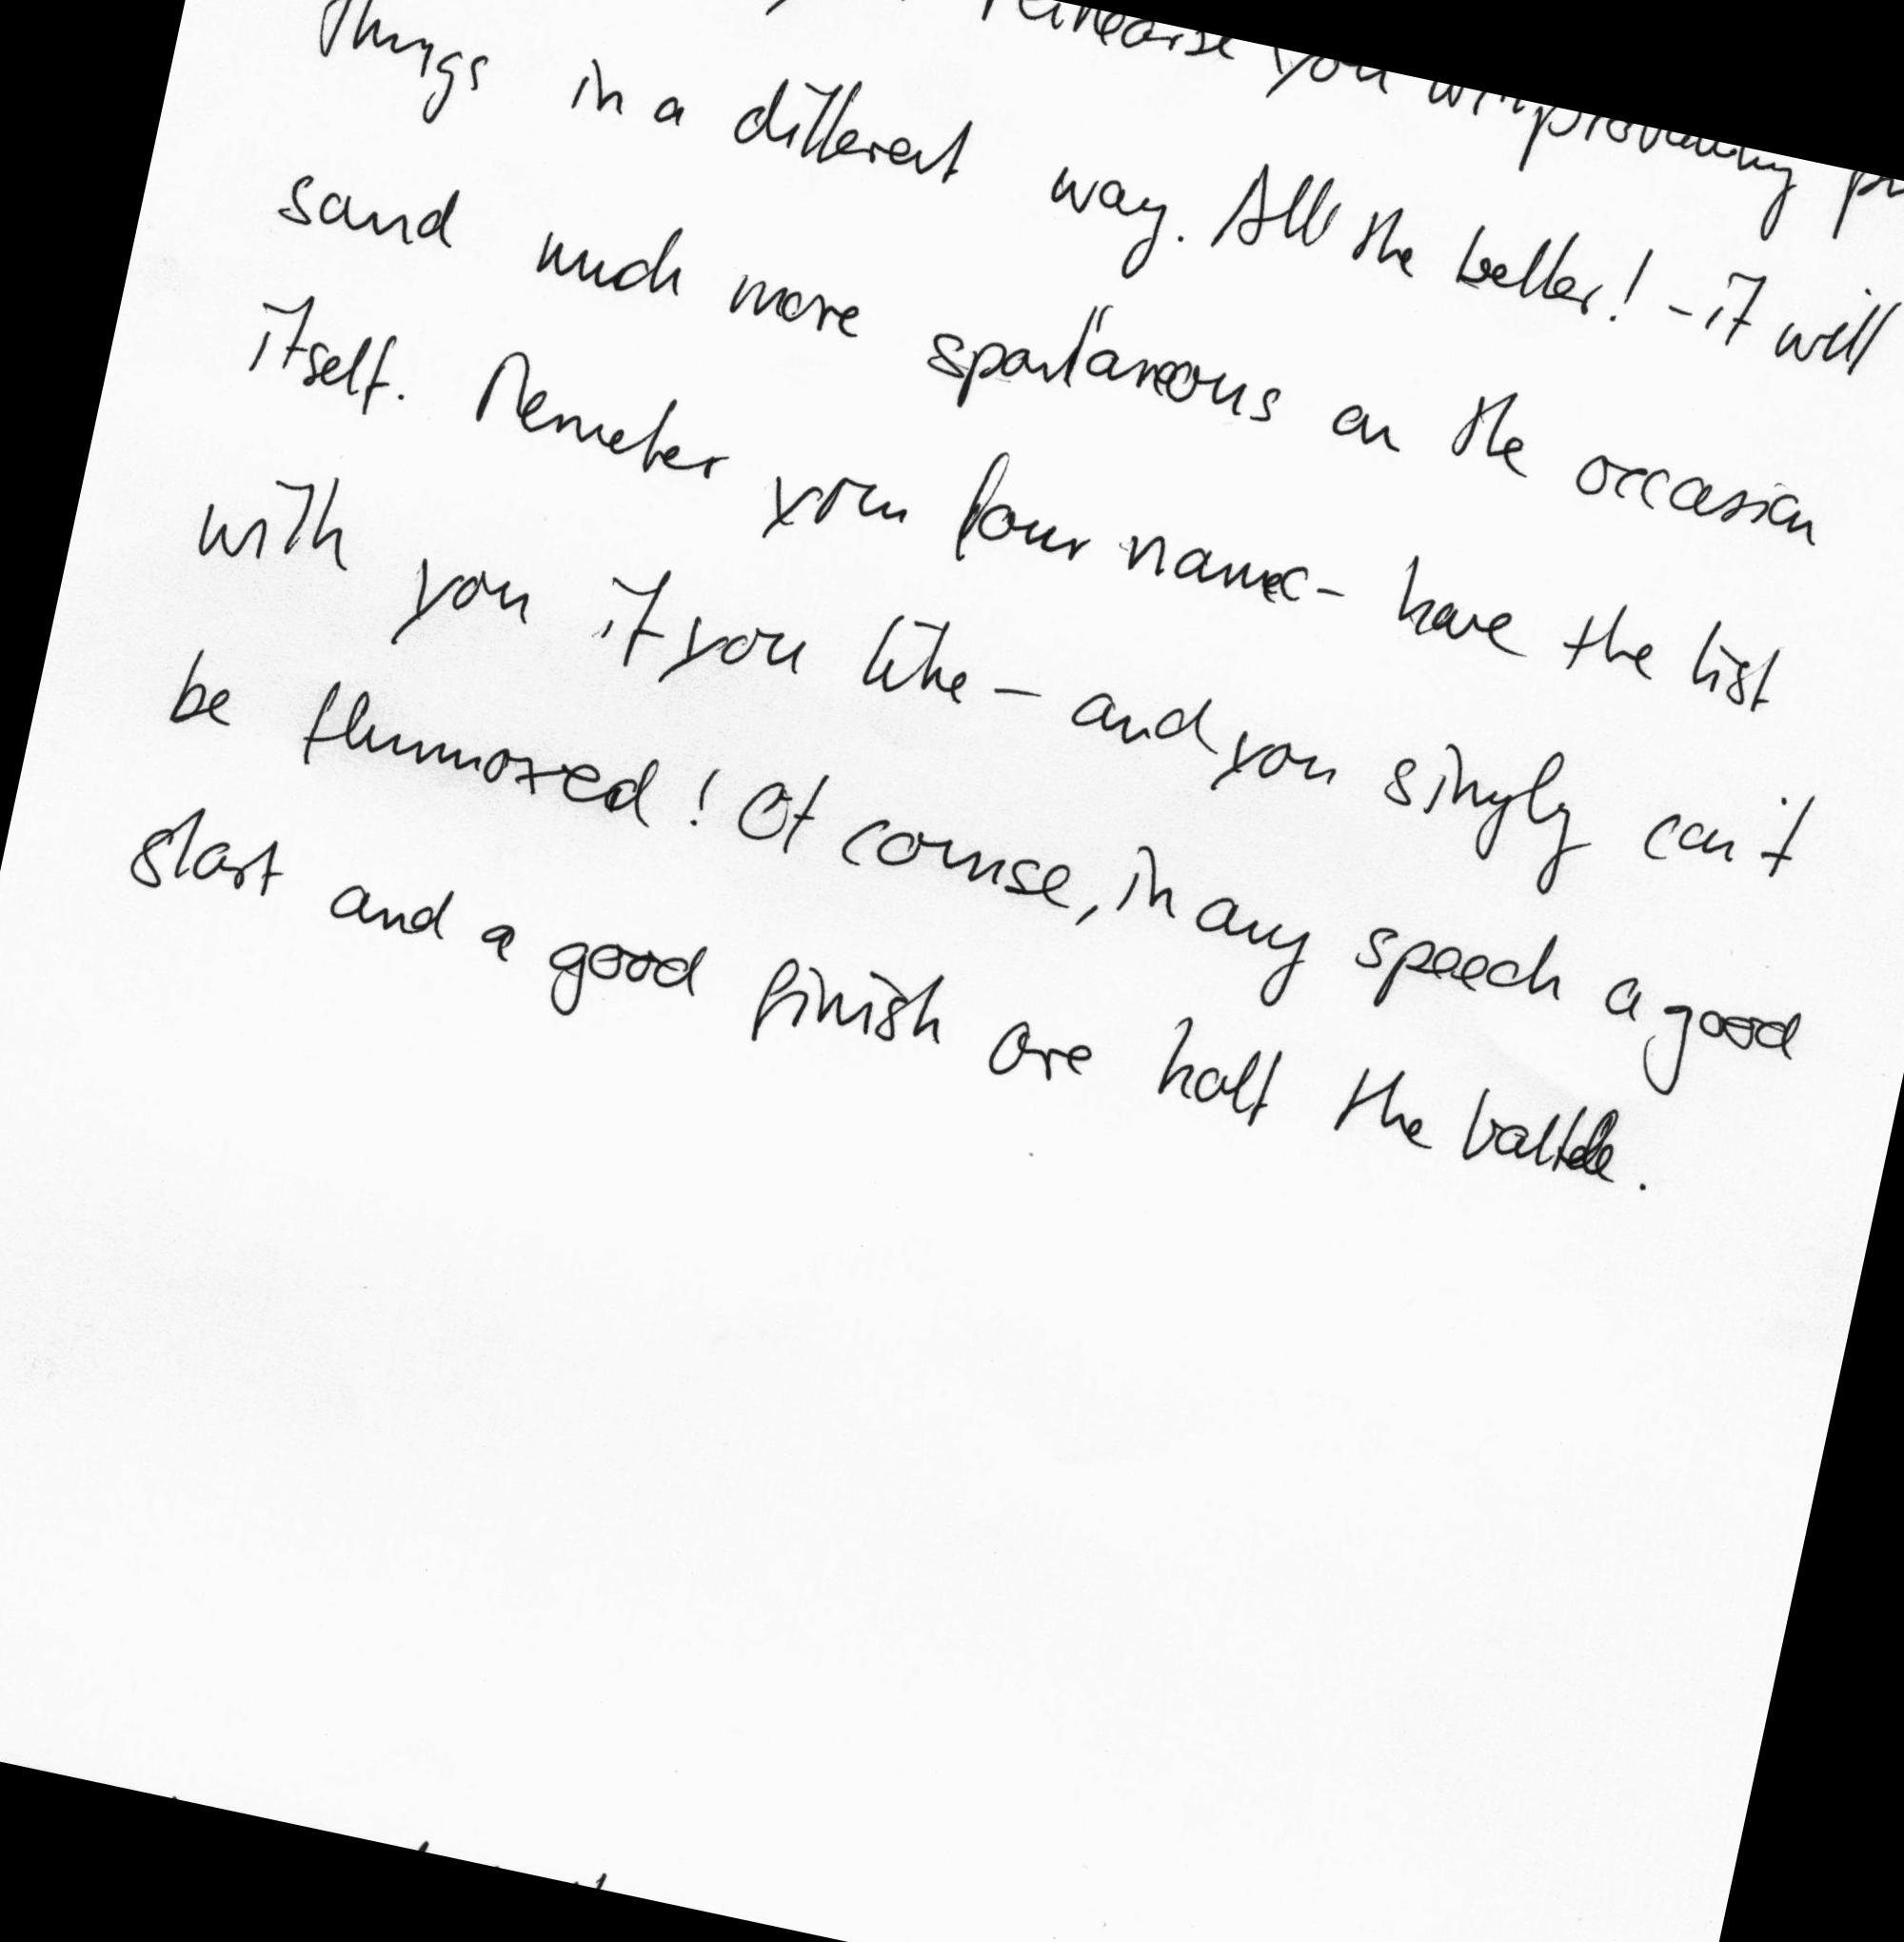 rehearse you will probably
things in a different way. All the better! - it will
sound much more spontaneous on the occasion
itself. Remeber your four name - have the list
with you if you like - and you simply can't
be flummoxed! Of course, in any speech a good
start and a good finish are half the battle.